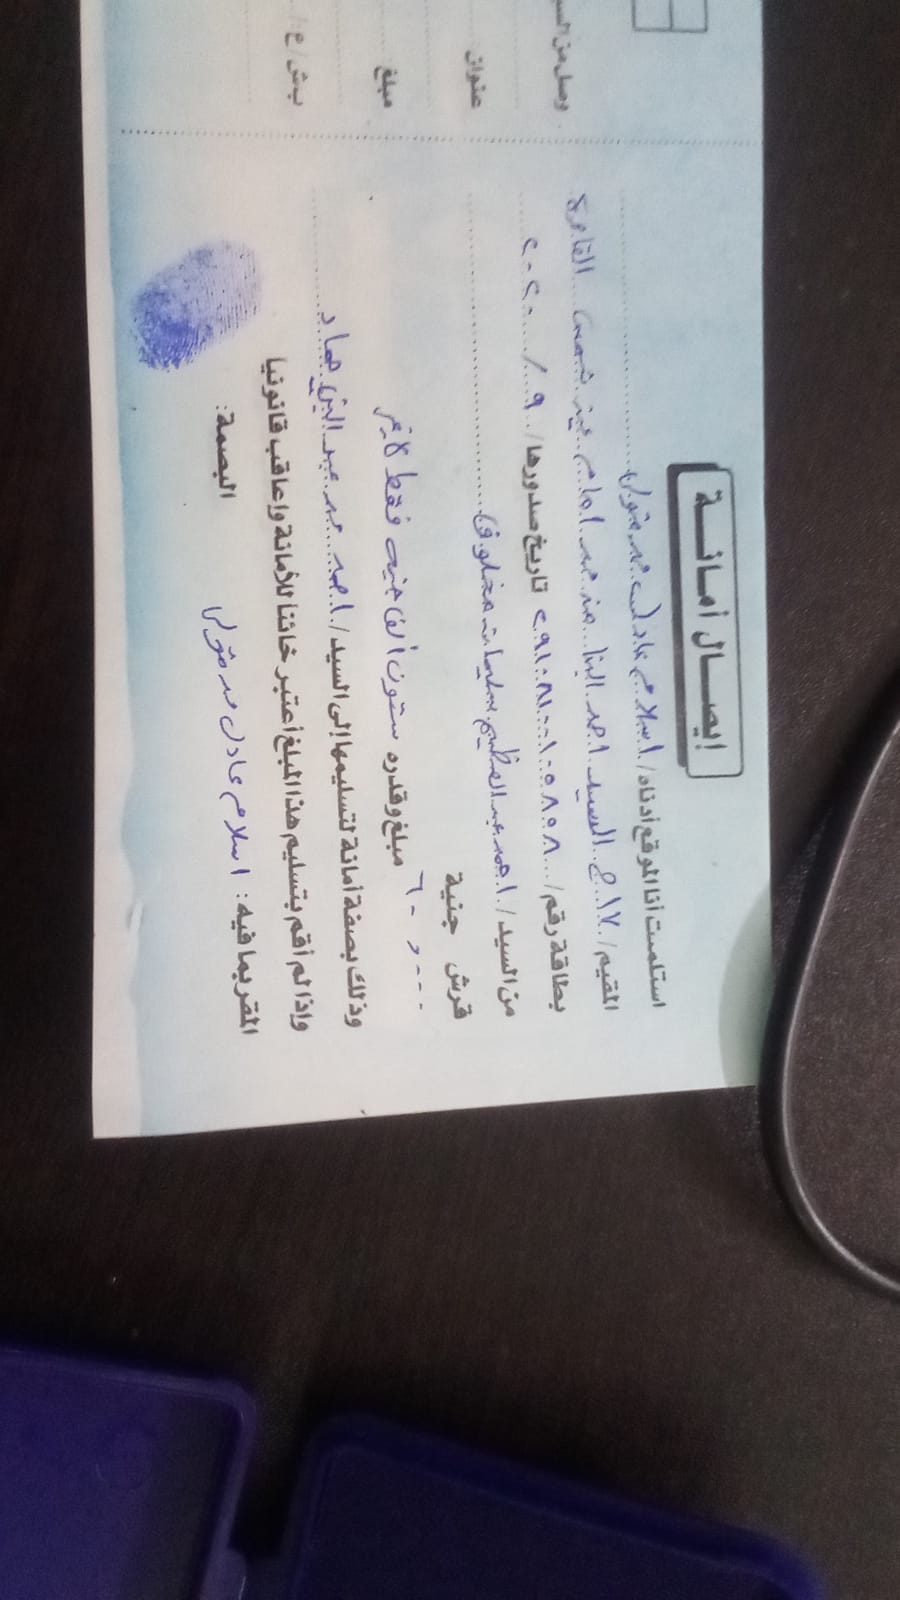 إيصال أمانة
استلمت أنا الموقع أدناه / اسلام عادل محمد متولى
المقيم / ١٧ ع السيد احمد البنا من محمد امام عين شمس القاهرة
بطاقة رقم / ٢٩١٠٨١٠٠١٠٥٨٥٨ تاريخ صدورها / ٩ / ٢٠٢٠
من السيد / احمد عبد العظيم سليمان مخلوف
قرش جنية
٦٠,٠٠٠ مبلغ وقدره ستون ألف جنيه فقط لاغير
وذلك بصفة أمانة لتسليمها إلى السيد / احمد محمد عبد النبي حماد
وإذا لم أقم بتسليم هذا المبلغ أعتبر خائنا للأمانة وإعاقب قانونيا
المقر بما فيه : اسلام عادل محمد متولى البصمة :
وصل من السيد
عنوان
مبلغ
ب ش / ع /